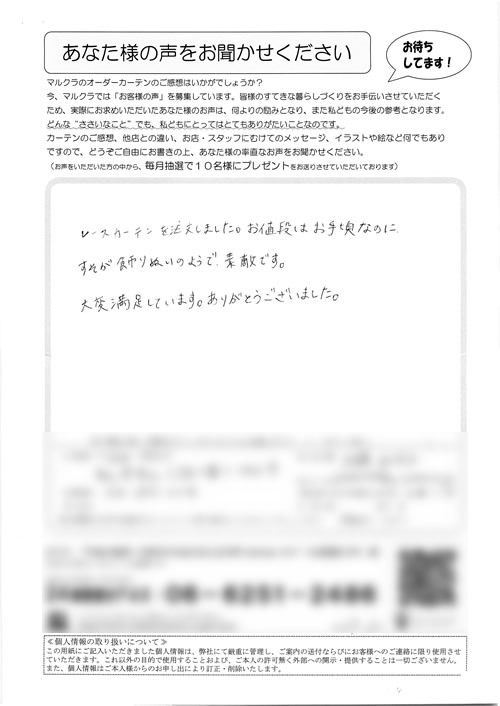 あなた様の声をお聞かせください
お待ち
してます!
マルクラのオーダーカーテンのご感想はいかがでしょうか?
今、マルクラでは「お客様の声」を募集しています。皆様のすてきな暮らしづくりをお手伝いさせていただく
ため、実際にお求めいただいたあなた様のお声は、何よりの励みとなり、また私どもの今後の参考となります。
どんな“ささいなこと”でも、私どもにとってはとてもありがたいことなのです。
カーテンのご感想、他店との違い、お店・スタッフにむけてのメッセージ、イラストや絵など何でもあり
ますので、どうぞご自由にお書きの上、あなた様の率直なお声をお聞かせください。
(お声をいただいた方の中から、毎月抽選で10名様にプレゼントをお送りさせていただいております)
レースカーテンを注文しました。お値段はお手頃なのに、
すそが飾りぬいのようで、素敵です。
大変満足しています。ありがとうございました。
≪個人情報の取り扱いについて≫
この用紙にご記入いただきました個人情報は、弊社にて厳重に管理し、ご案内の送付ならびにお客様へのご連絡に限り使用させ
ていただきます。これ以外の目的で使用することおよび、ご本人の許可無く外部への開示・提供することは一切ございません。
また、個人情報はご本人様からのお申し出により訂正・削除いたします。